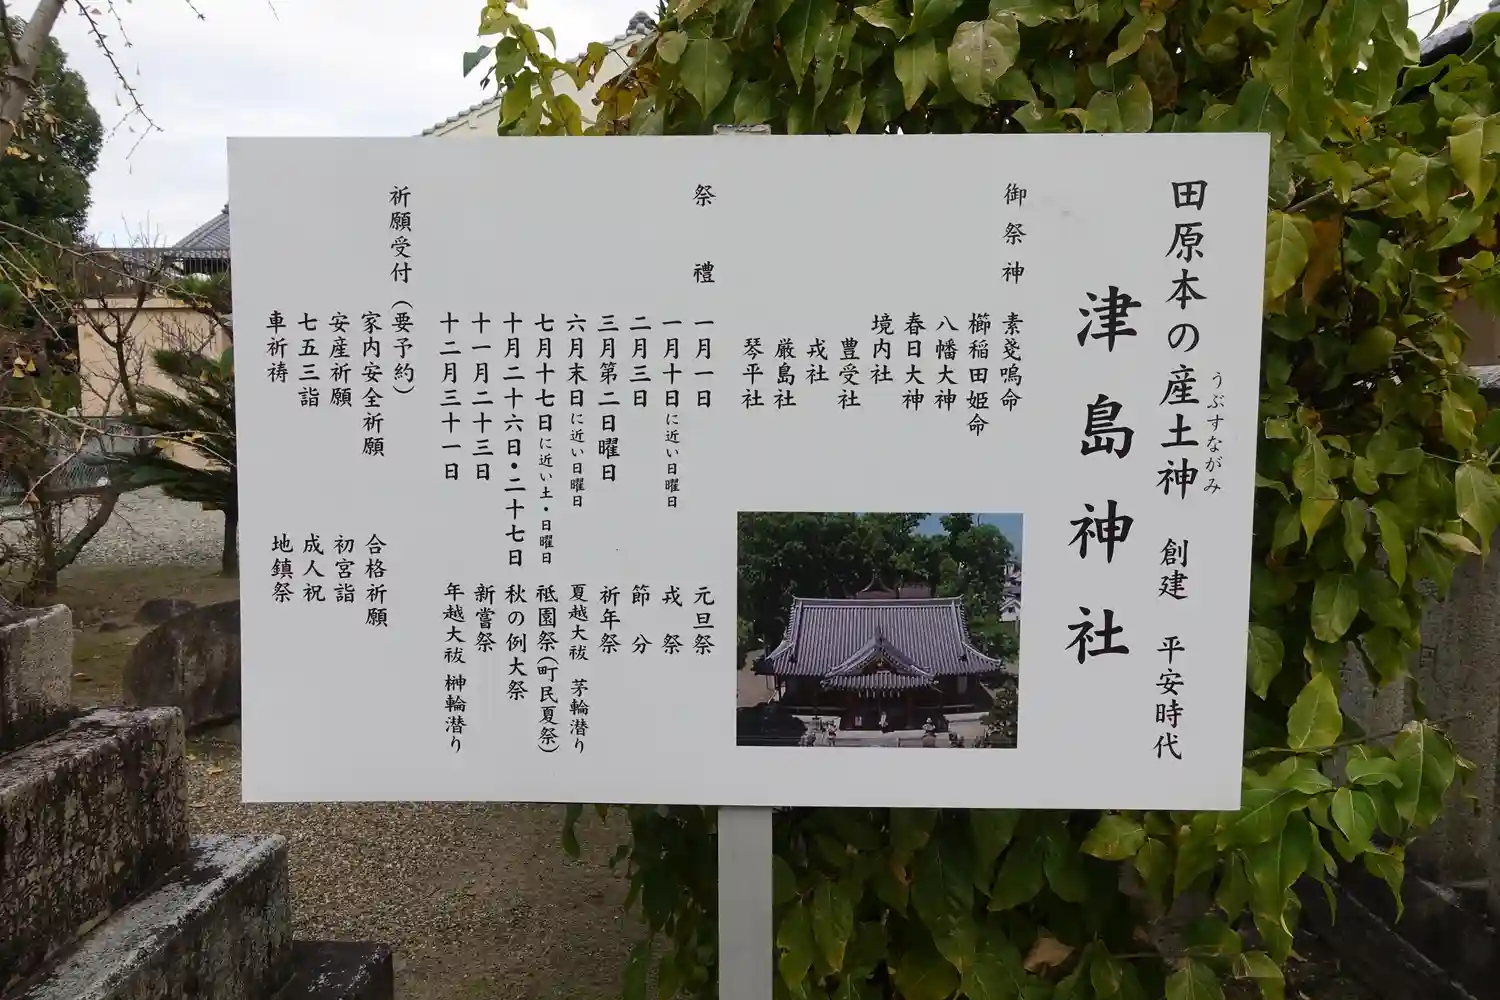 田原本の産土神　創建　平安時代
うぶすながみ
津島神社
御祭神
素戔嗚命
櫛稲田姫命
八幡大神
春日大神
境内社
豊受社
戎社
厳島社
琴平社
祭禮
一月一日　元旦祭
一月十日に近い日曜日　戎祭
二月三日　節分
三月第二日曜日　祈年祭
六月末日に近い日曜日　夏越大祓　茅輪潜り
七月十七日に近い土・日曜日　祇園祭(町民夏祭)
十月二十六日・二十七日　秋の例大祭
十一月二十三日　新嘗祭
十二月三十一日　年越大祓　榊輪潜り
祈願受付(要予約)
家内安全祈願　合格祈願
安産祈願　初宮詣
七五三詣　成人祝
車祈祷　地鎮祭